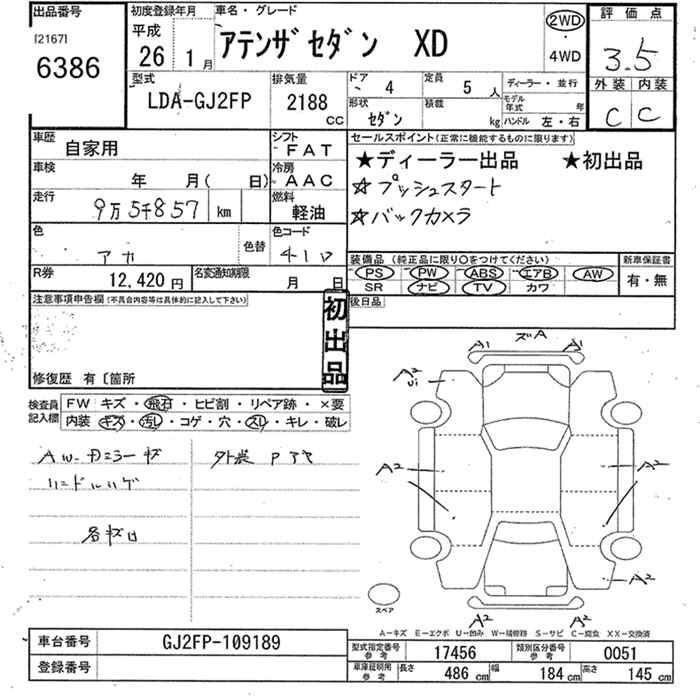 出品番号
[2167]
6386
初度登録年月
平成
26 1月
車名・グレード
アテンザセダン XD
2WD
・
4WD
評価点
3.5
外装 内装
C C
型式
LDA-GJ2FP
排気量
2188
CC
ドア 4
定員 5 人
形状 セダン
積載 kg
ディーラー・並行
モデル年式 年
ハンドル 左・右
車歴 自家用
シフト FAT
車検 年 月( 日)
冷房 AAC
走行 9万5千857 km
燃料 軽油
色 アカ
色替
色コード 41ロ
R券 12,420 円
名変通知期限 月 日
セールスポイント(正常に機能するものに限ります)
★ディーラー出品 ★初出品
☆プッシュスタート
☆バックカメラ
装備品(純正品に限り○をつけてください)
PS PW ABS エアB AW
SR ナビ TV カワ
新車保証書
有・無
後日品
注意事項申告欄(不具合内容等は具体的に記入して下さい)
初出品
修復歴 有〔箇所
検査員記入欄
FW キズ・飛石・ヒビ割・リペア跡・×要
内装 キズ・汚レ・コゲ・穴・スレ・キレ・破レ
AW
ハンドルハゲ
外装
ズA
A1 A1
A2
Ui
A2 A2
A2
A2 A2
スペア
A-キズ E-エクボ U-凹み W-補修跡 S-サビ C-腐食 XX-交換済
車台番号 GJ2FP-109189
登録番号
型式指定番号参考 17456
類別区分番号参考 0051
車庫証明用参考 長さ 486 cm 幅 184 cm 高さ 145 cm